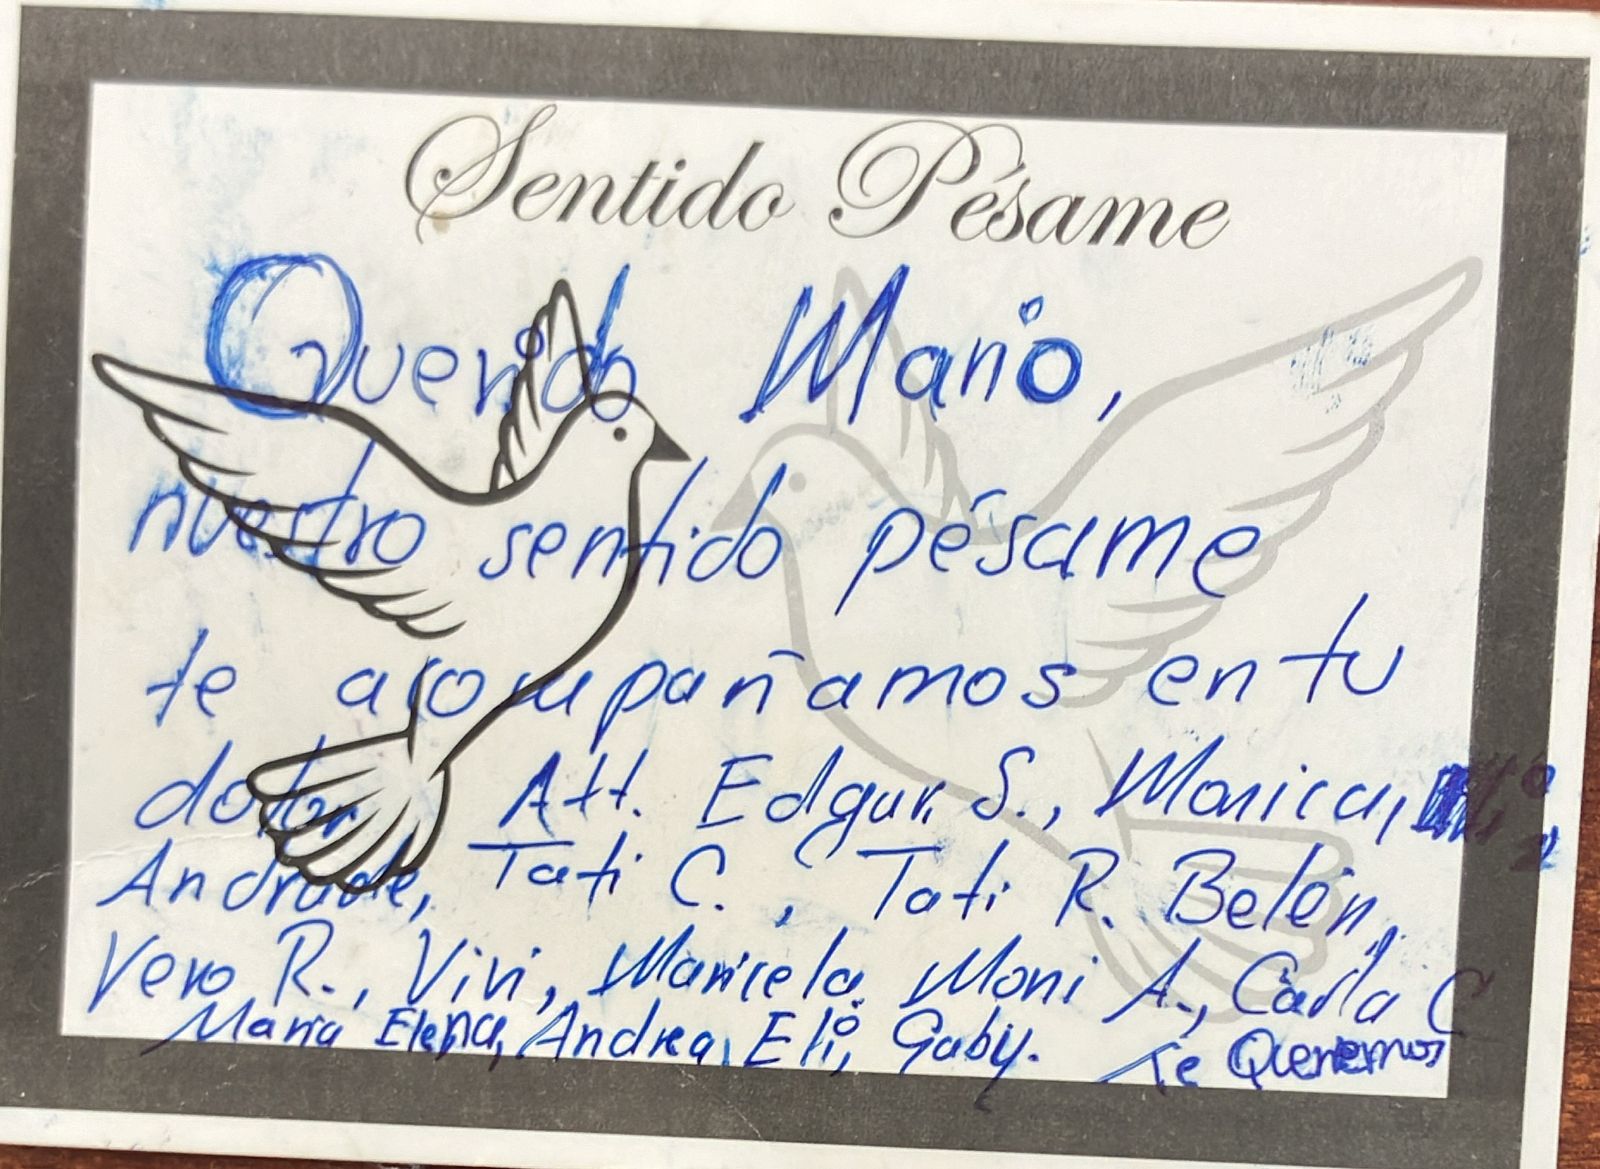 Sentido Pésame
Querido Mario,
nuestro sentido pésame
te acompañamos en tu
dolor Att. Edgar S., Monica,
Andrade, Tati C., Tati R. Belén,
Vero R., Vivi, Maricela, Moni A., Carla C
Maria Elena, Andrea, Eli, Gaby. Te Queremos